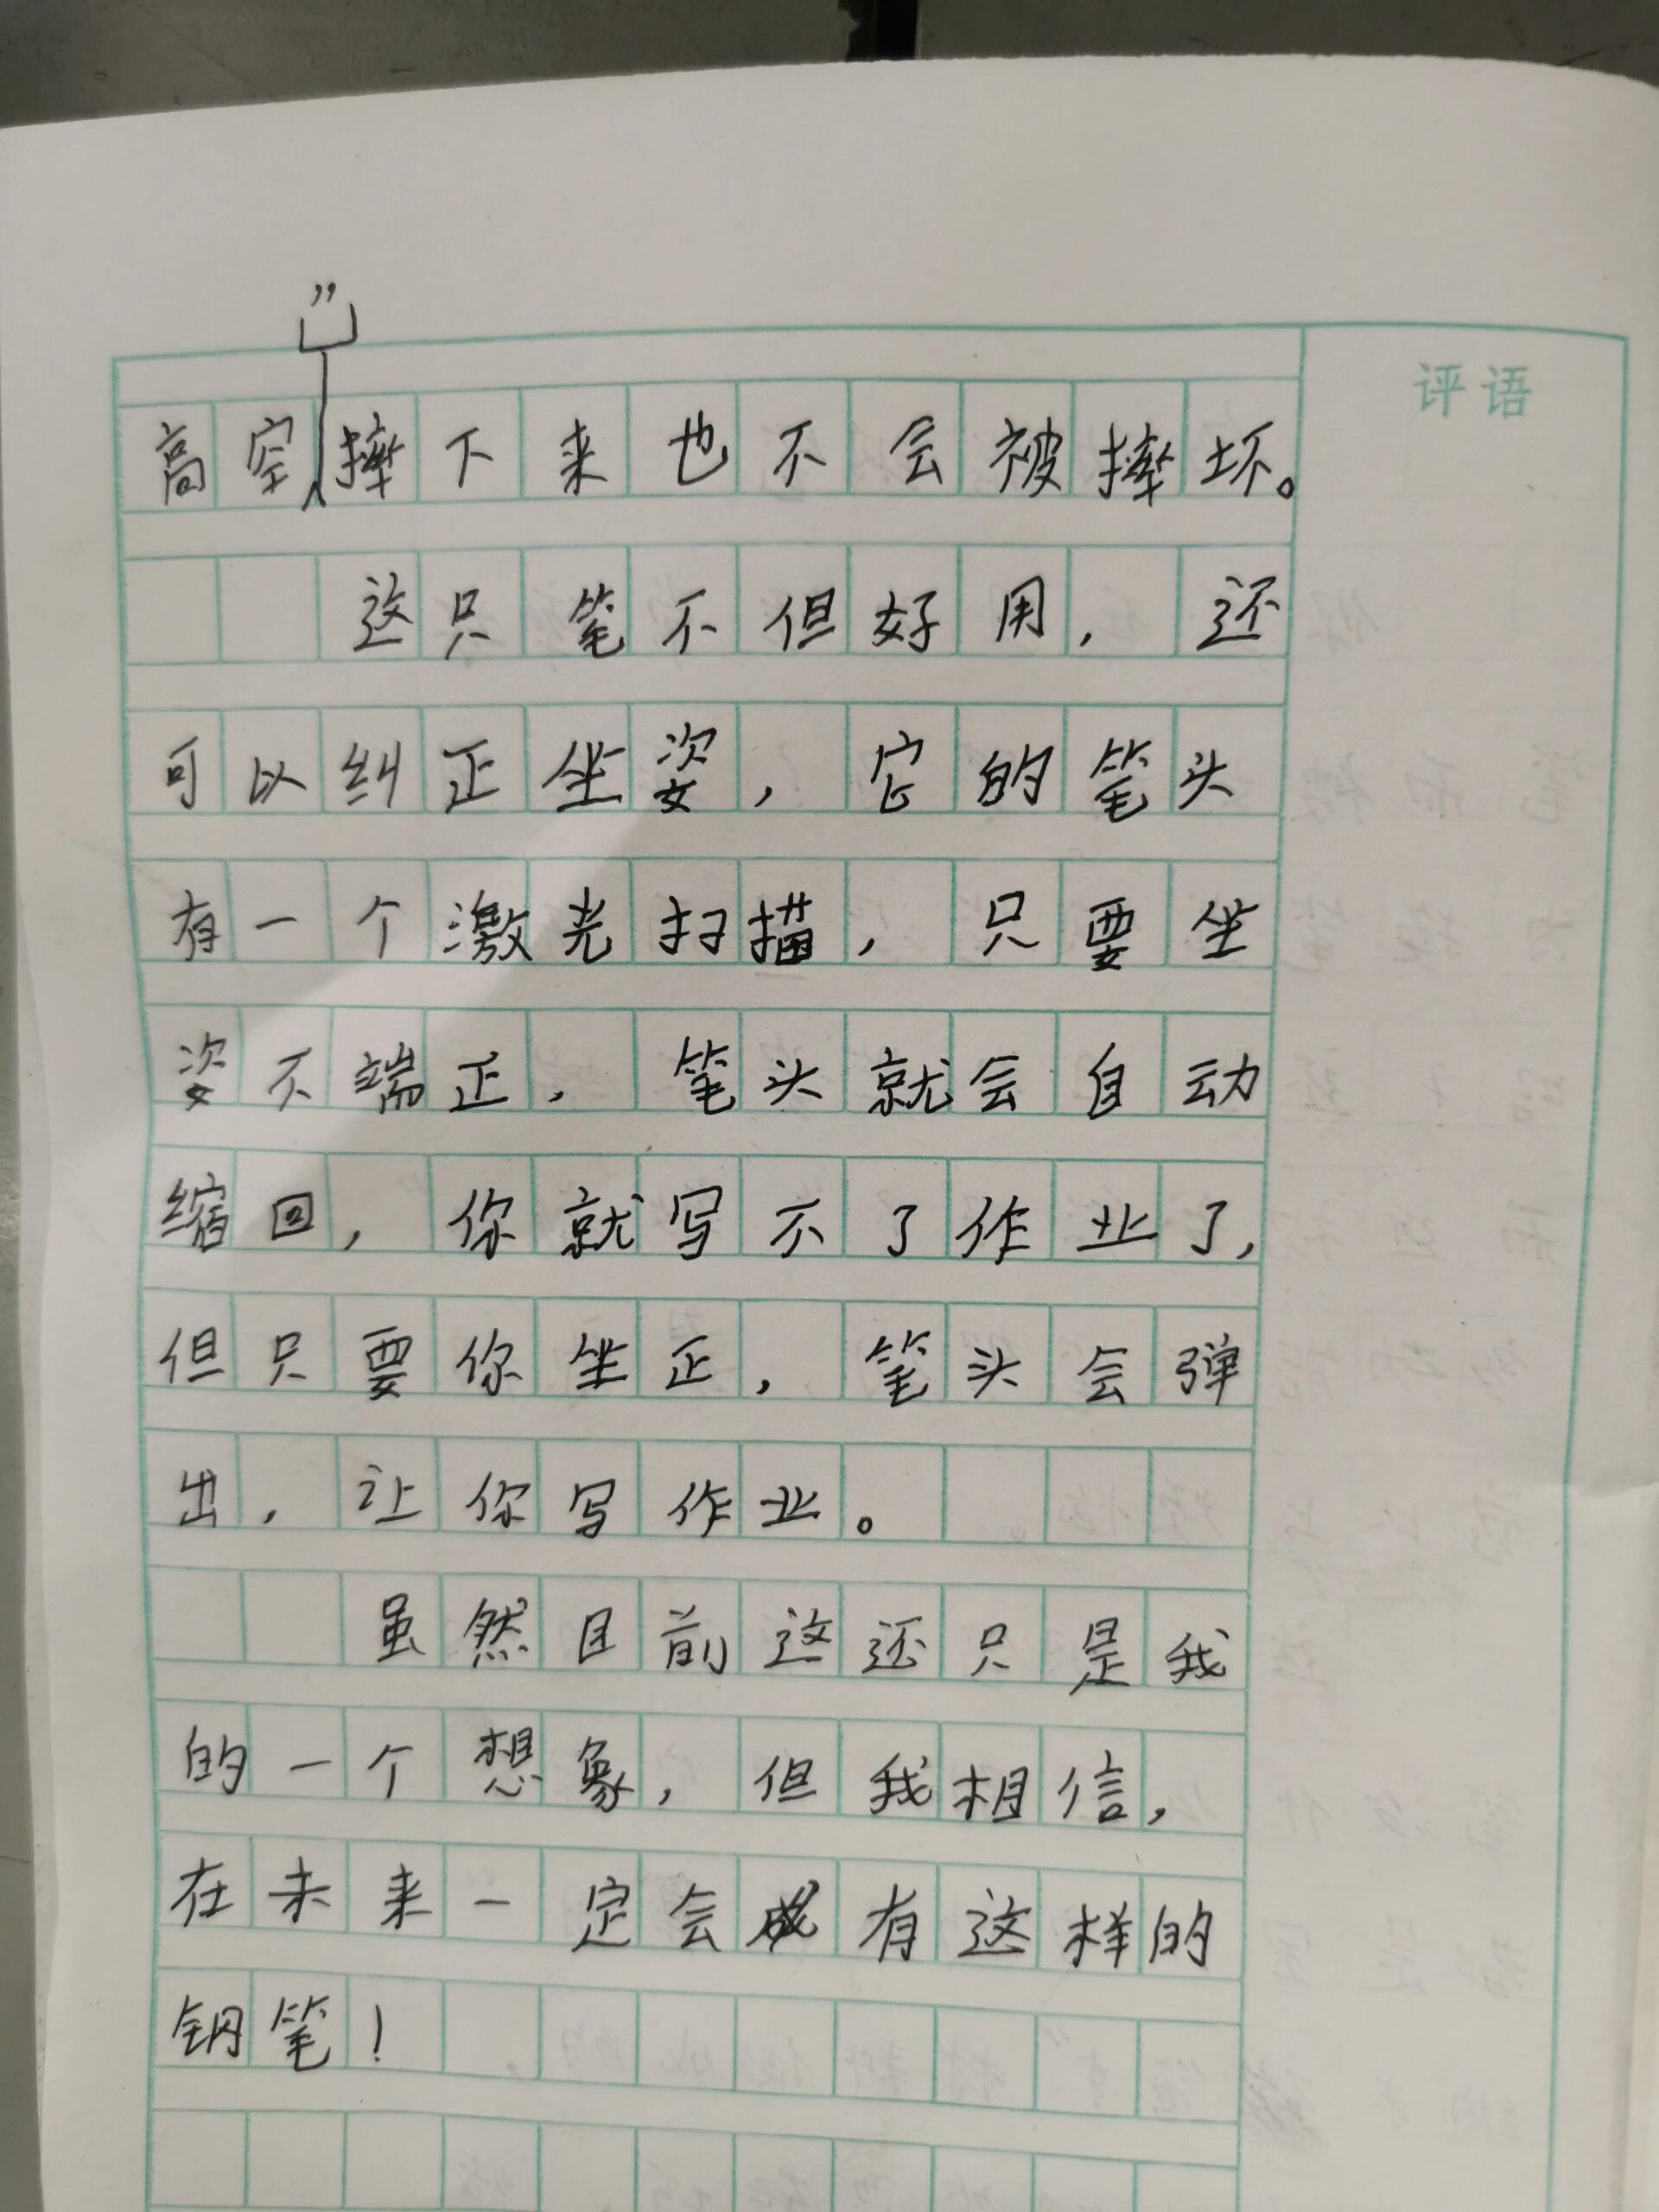 ”
评语
高空摔下来也不会被摔坏。
这只笔不但好用，还
可以纠正坐姿，它的笔头
有一个激光扫描，只要坐
姿不端正，笔头就会自动
缩回，你就写不了作业了，
但只要你坐正，笔头会弹
出，让你写作业。
虽然目前这还只是我
的一个想象，但我相信，
在未来一定会有这样的
钢笔！